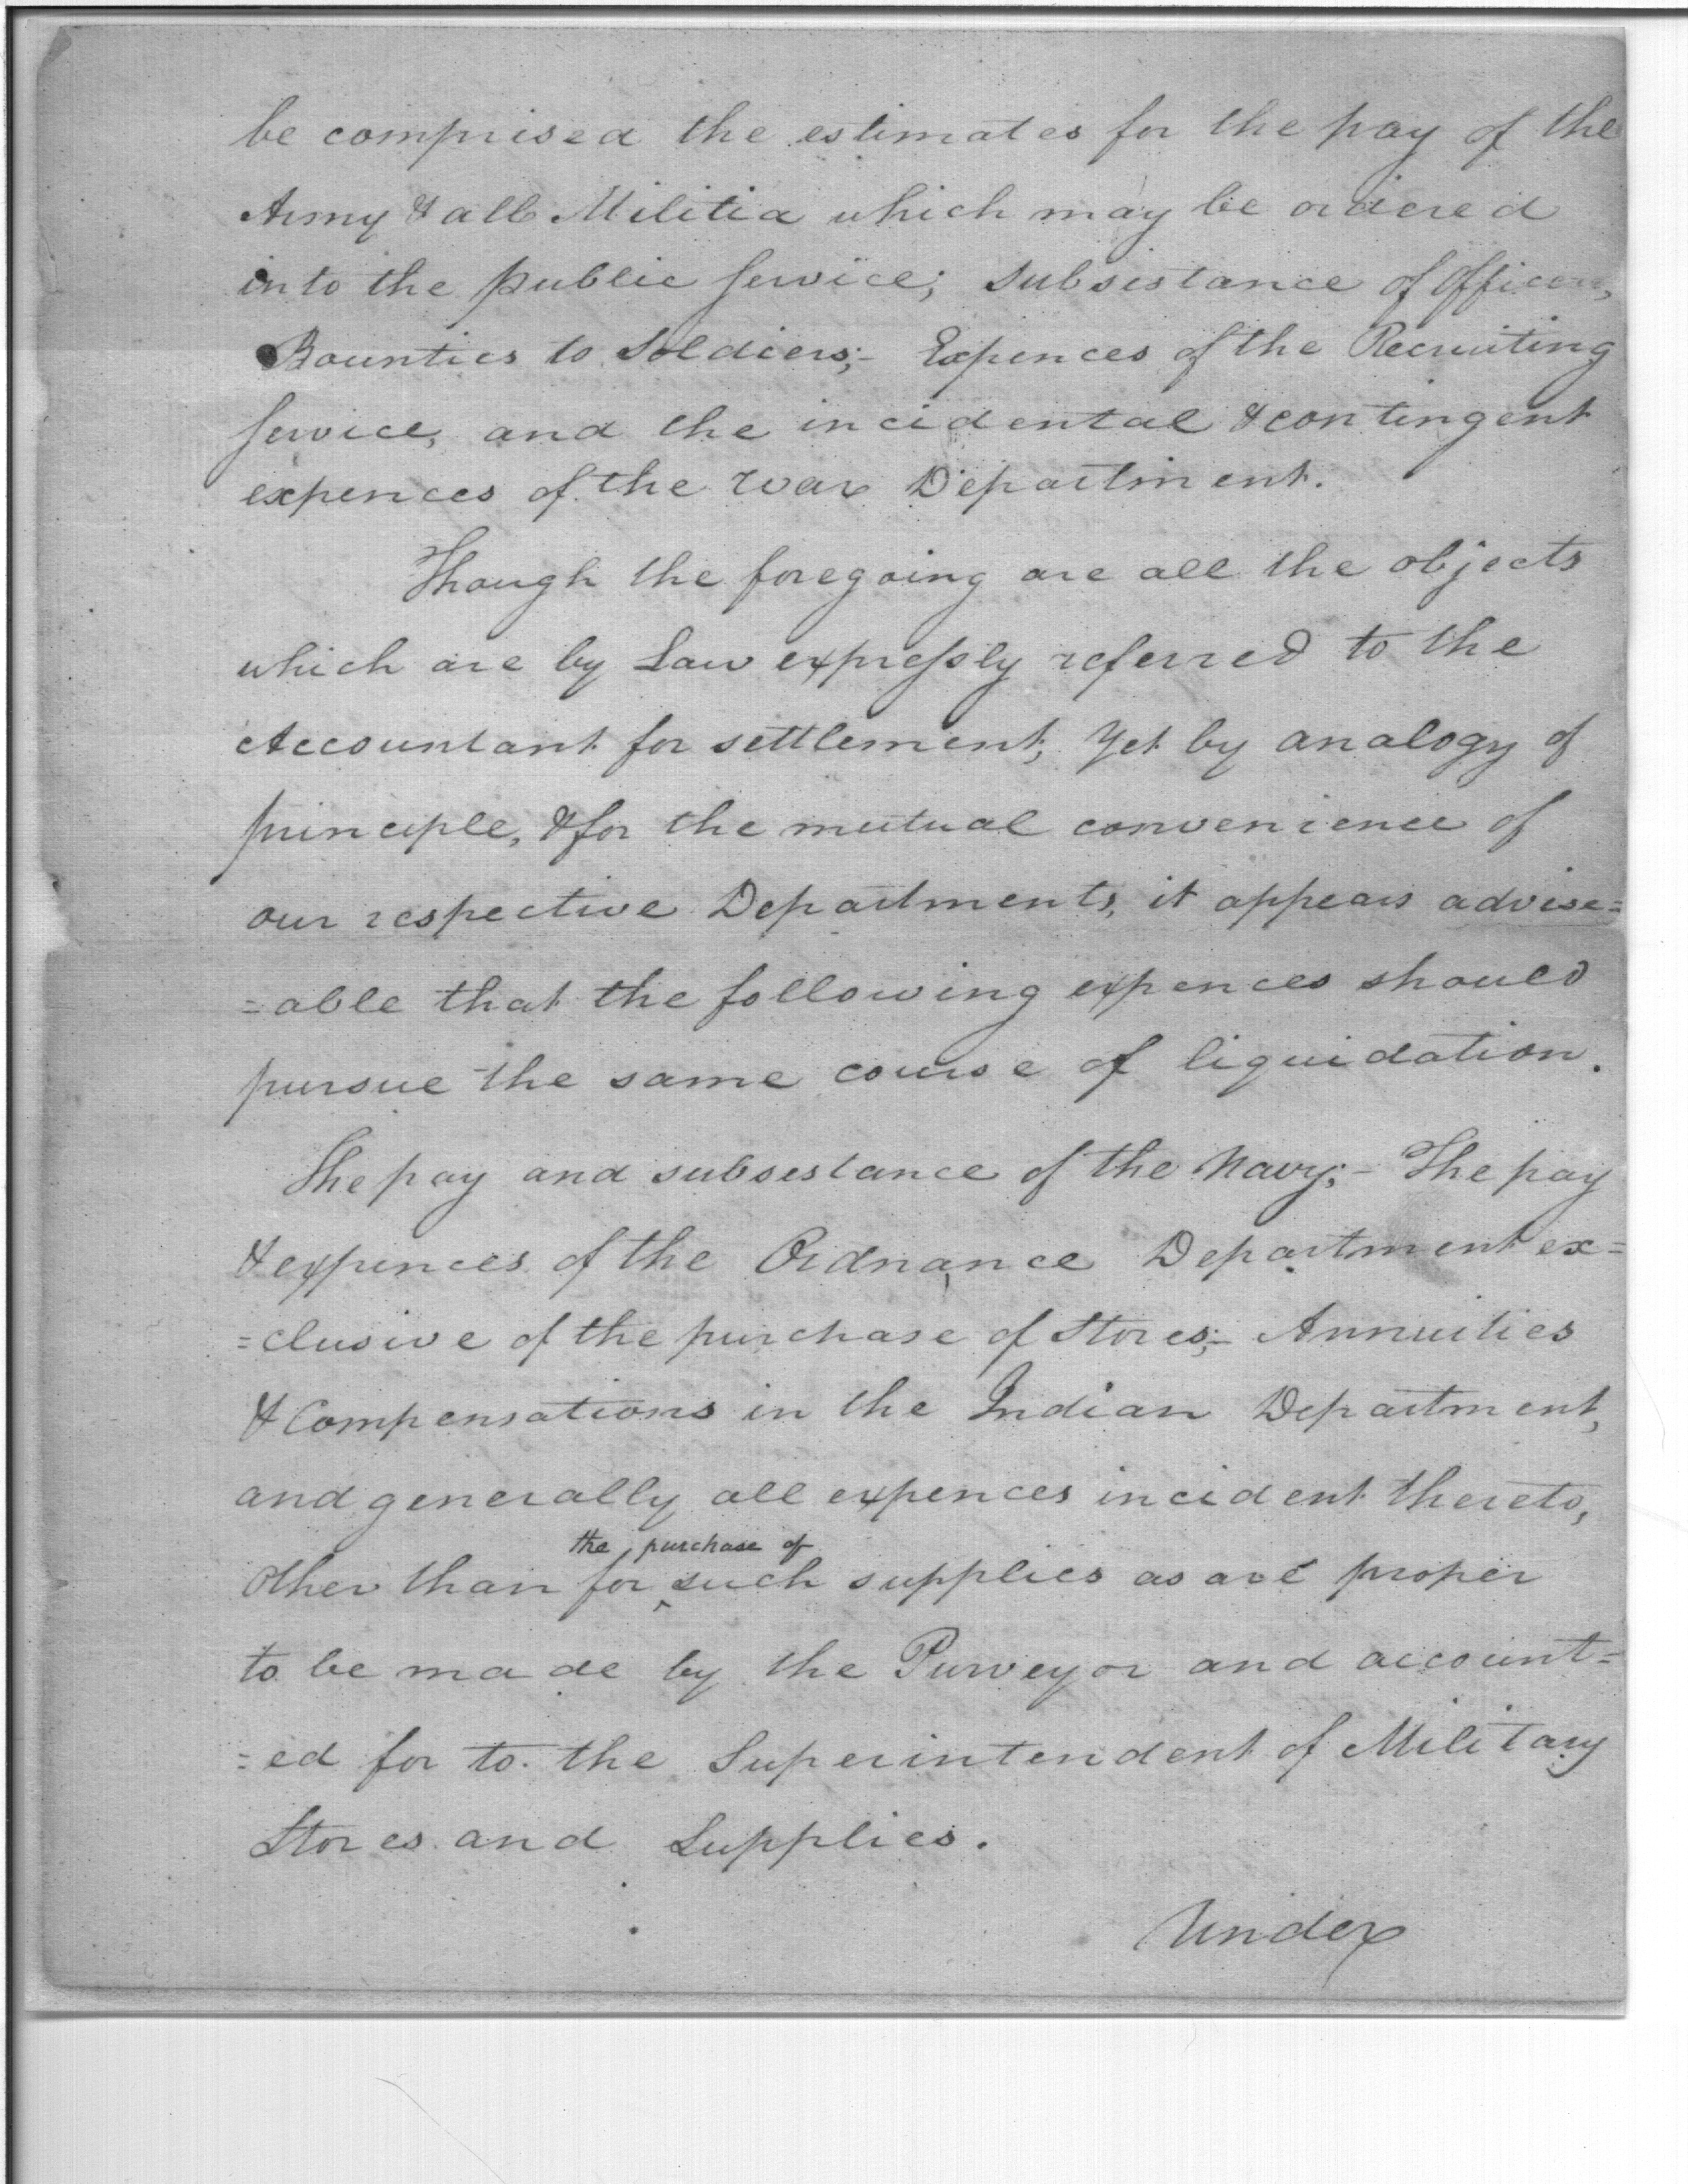 be comprised the estimates for the pay of the
Army & all Militia which may be ordered
into the public service; subsistance of Officers,
Bounties to Soldiers;- Expences of the Recruiting
service, and the incidental & contingent
expences of the War Department.
Though the foregoing are all the objects
which are by Law expressly referred to the
Accountant for settlement, Yet by analogy of
principle, & for the mutual convenience of
our respective Departments, it appears advise=
=able that the following expences should
pursue the same course of liquidation.
The pay and subsistance of the Navy;- The pay
& expences of the Ordnance Department ex=
=clusive of the purchase of Stores;- Annuities
& Compensations in the Indian Department,
and generally all expences incident thereto,
the purchase of
Other than for such supplies as are proper
to be made by the Purveyor and account=
=ed for to the Superintendent of Military
Stores and Supplies.
Under